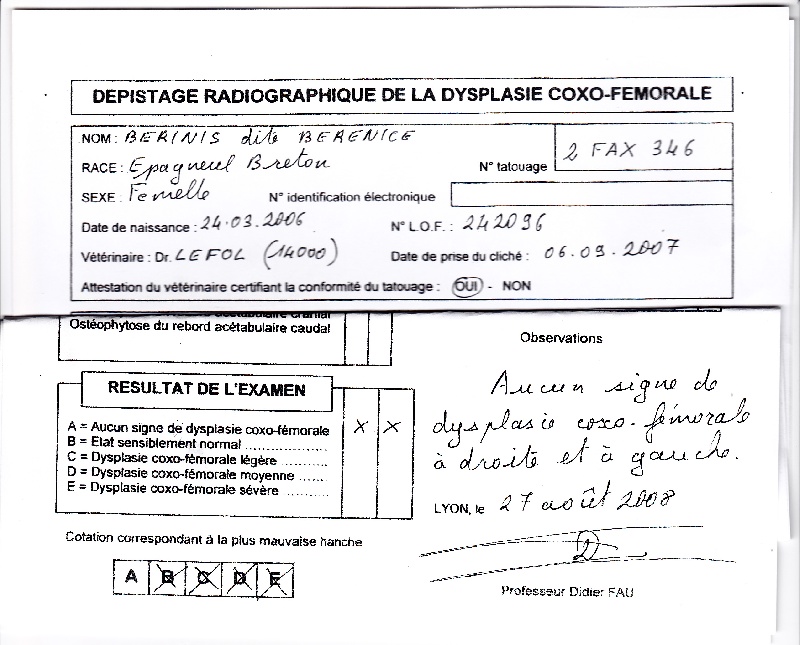 DEPISTAGE RADIOGRAPHIQUE DE LA DYSPLASIE COXO-FEMORALE
NOM : BERINIS dite BERENICE
RACE : Epagneul Breton
N° tatouage 2 FAX 346
SEXE : Femelle N° identification électronique
Date de naissance : 24.03.2006 N° L.O.F. : 242096
Vétérinaire : Dr. LEFOL (14000) Date de prise du cliché : 06.09.2007
Attestation du vétérinaire certifiant la conformité du tatouage : OUI - NON
Ostéophytose du rebord acétabulaire caudal
RESULTAT DE L'EXAMEN
A = Aucun signe de dysplasie coxo-fémorale X X
B = Etat sensiblement normal
C = Dysplasie coxo-fémorale légère
D = Dysplasie coxo-fémorale moyenne
E = Dysplasie coxo-fémorale sévère
Cotation correspondant à la plus mauvaise hanche
A B C D E
Observations
Aucun signe de
dysplasie coxo-fémorale
à droite et à gauche.
LYON, le 27 août 2008
Professeur Didier FAU